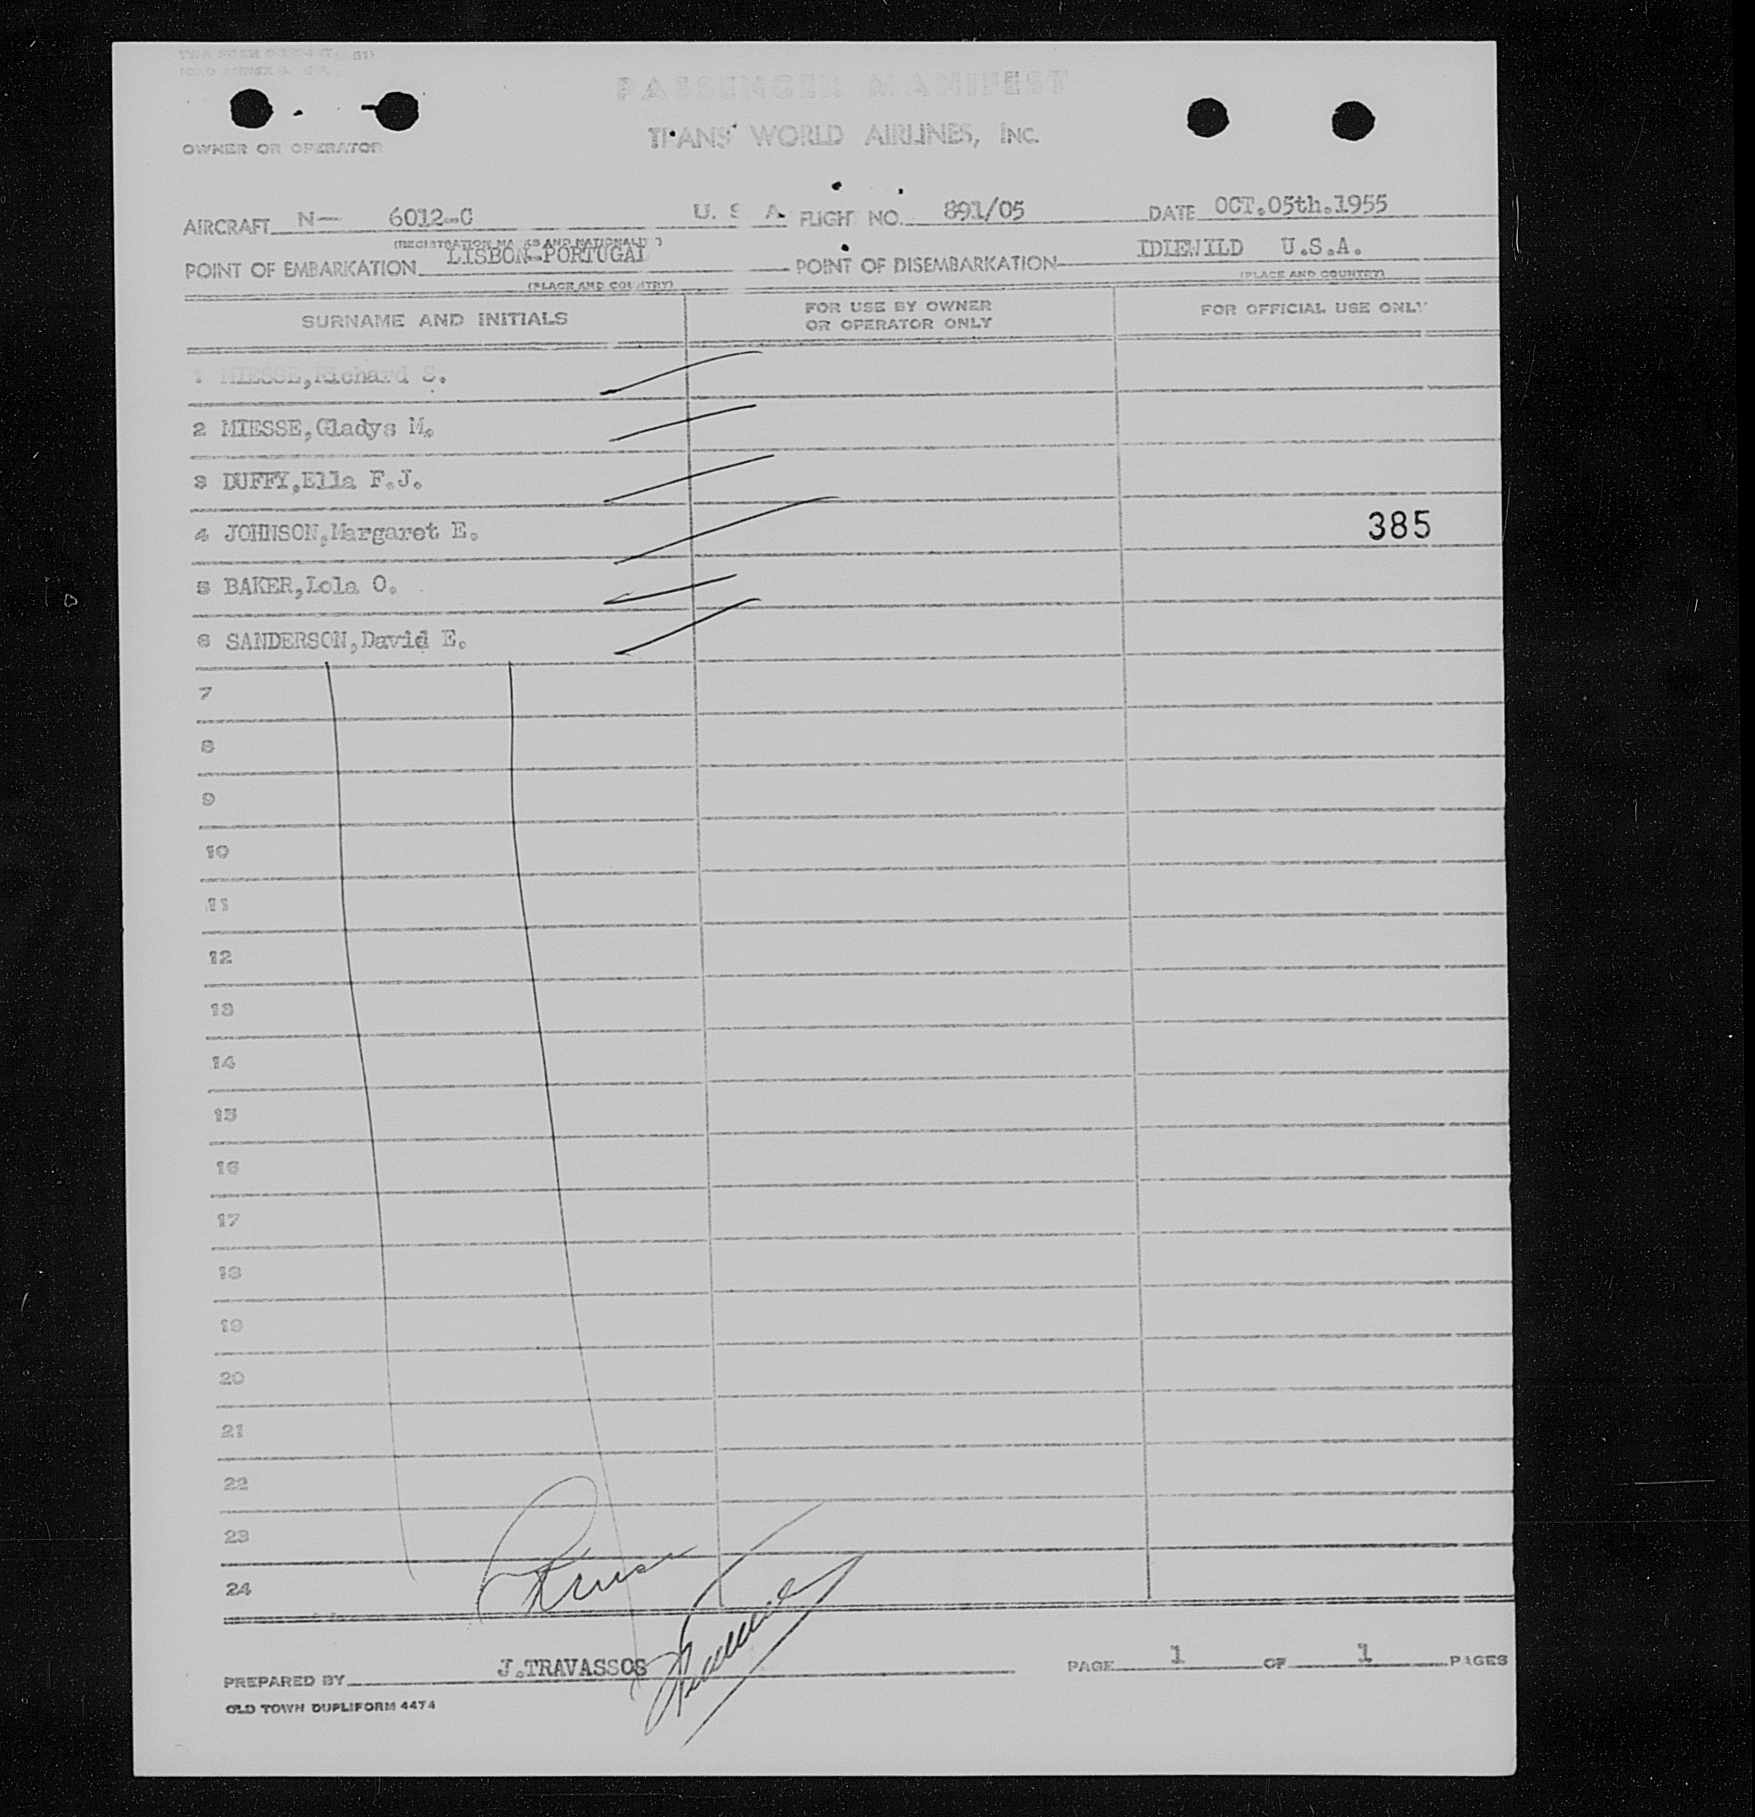 PASSENGER MANIFEST
TRANS WORLD AIRLINES, INC.
OWNER OR OPERATOR
AIRCRAFT N— 6012-C U. S. A. FLIGHT NO. 891/05 DATE OCT.05th.1955
(REGISTRATION MARKS AND NATIONALITY)
POINT OF EMBARKATION LISBON-PORTUGAL POINT OF DISEMBARKATION IDLEWILD U.S.A.
(PLACE AND COUNTRY) (PLACE AND COUNTRY)
SURNAME AND INITIALS FOR USE BY OWNER OR OPERATOR ONLY FOR OFFICIAL USE ONLY
1 MIESSE,Richard S.
2 MIESSE,Gladys M.
3 DUFFY,Ella F.J.
4 JOHNSON,Margaret E. 385
5 BAKER,Lola O.
6 SANDERSON,David E.
7
8
9
10
11
12
13
14
15
16
17
18
19
20
21
22
23
24
PREPARED BY J.TRAVASSOS PAGE 1 OF 1 PAGES
OLD TOWN DUPLIFORM 4474